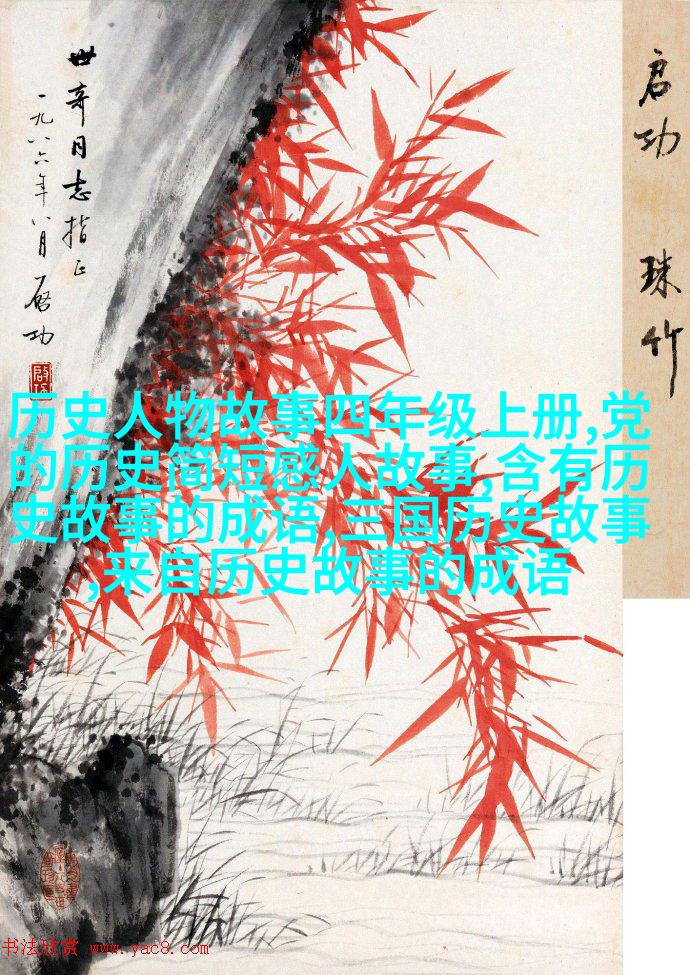 世奇同志指正
一九八六年八月 启功
启功
启功 珠竹
历史人物故事四年级上册,党
的历史简短感人故事,含有历
史故事的成语,三国历史故事
,来自历史故事的成语
书法欣赏 www.yac8.com